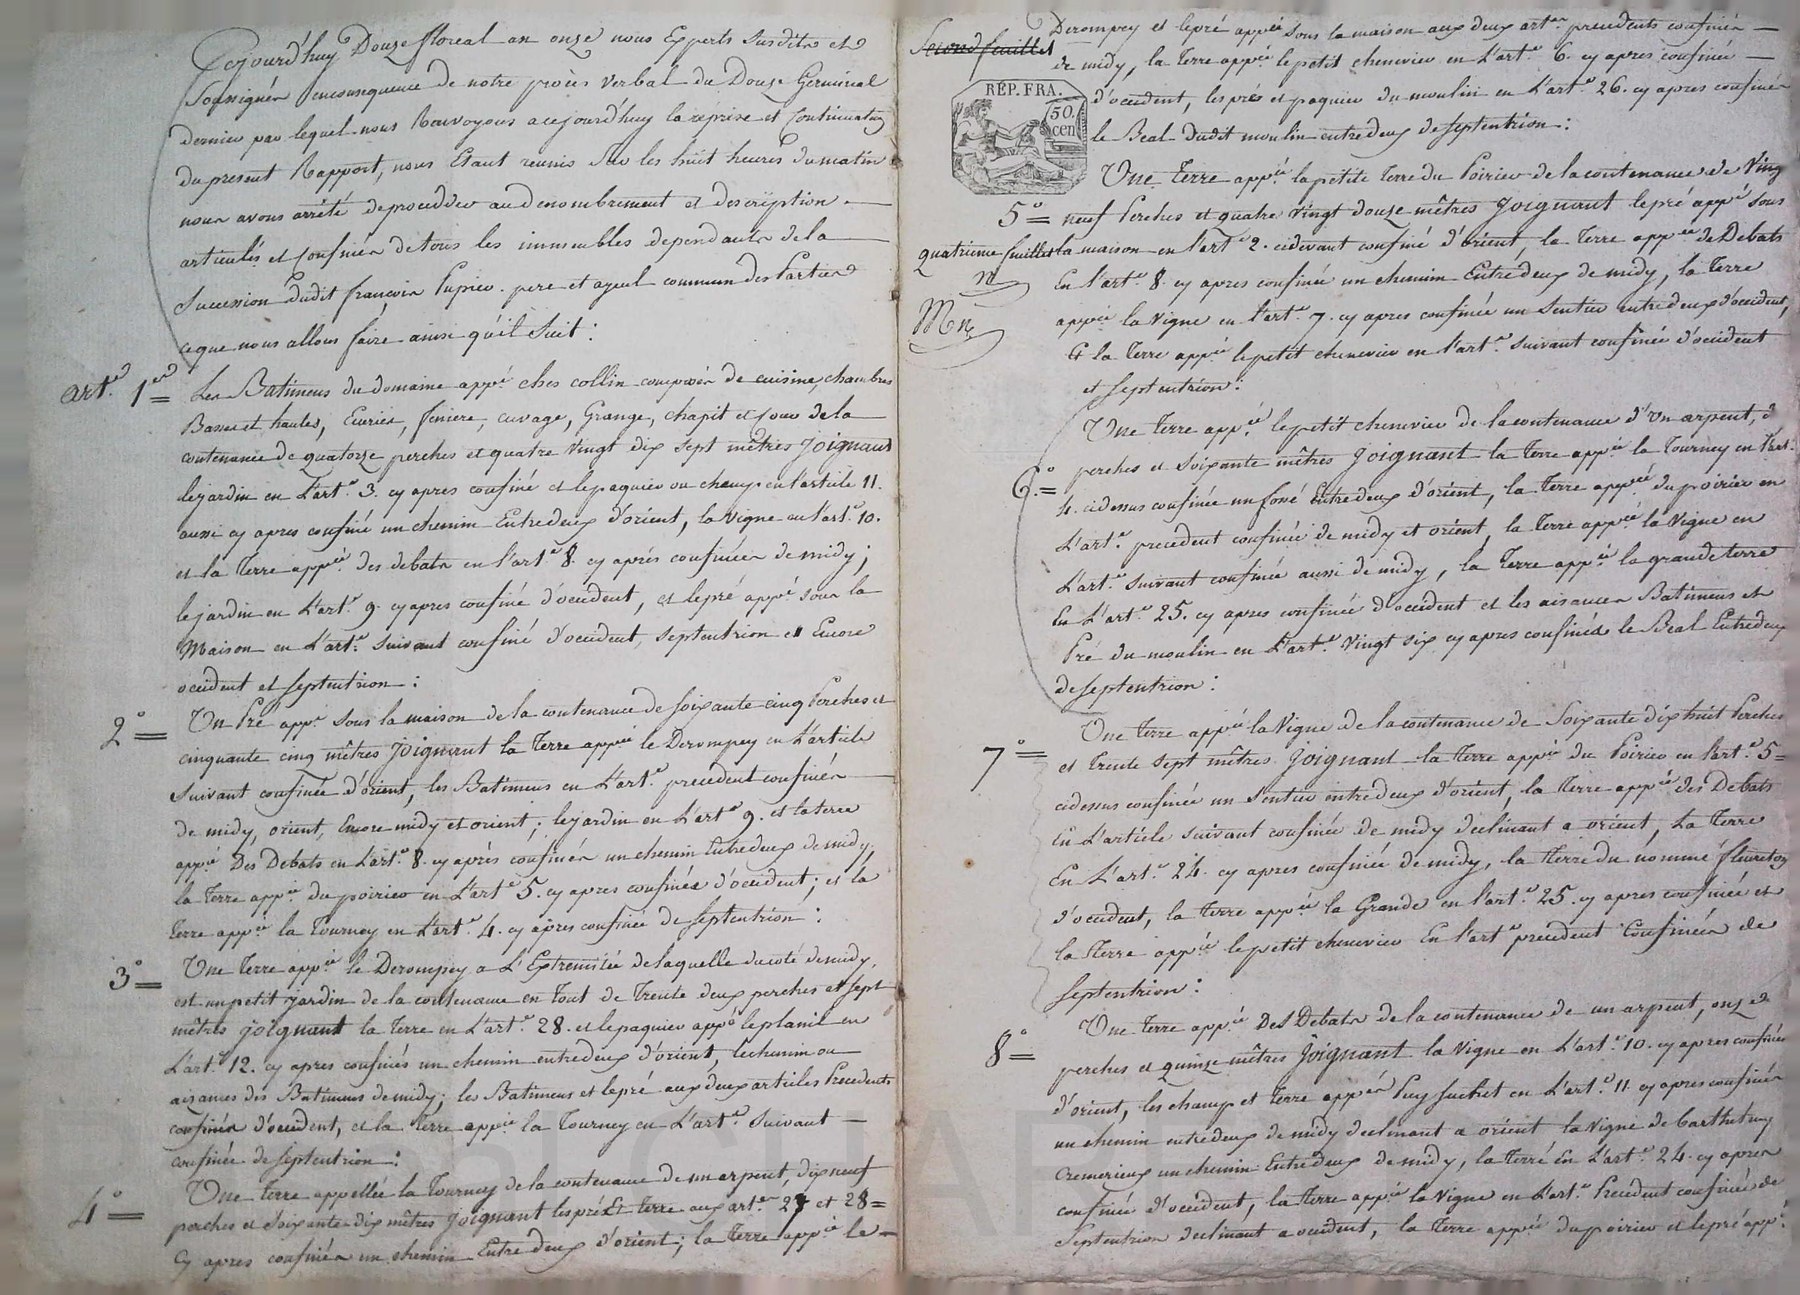 Cejourd'huy Douze floreal an onze nous Experts susdits et
soussignés en consequence de notre procès verbal du Douze Germinal
dernier par lequel nous Renvoyons a cejourd'huy la reprise et Continuation
du present Rapport, nous Etant reunis sur les huit heures du matin
nous avons arrêté de proceder au denombrement et description
articulés et confinés de tous les immeubles dependants de la
succession dudit françois Pupier pere et ayeul commun des Parties
ce que nous allons faire ainsi qu'il suit :
artᵉ 1ᵉʳ = Les Batimens du domaine appᵉ ches collin composés de cuisine, chambres
Basses et hautes, Ecuries, feniere, cuvage, Grange, chapit et Cour de la
contenance de quatorze perches et quatre vingt dix sept mêtres Joignant
le jardin en L'artᵉ 3. cy apres confiné et le paquier ou champ en l'article 11.
aussi cy apres confiné un chemin Entredeux d'orient, la Vigne en l'artᵉ 10.
et la Terre appᵉᵉ des debats en l'artᵉ 8. cy aprés confinées de midy ;
le jardin en L'artᵉ 9. cy apres confiné d'occident, et le pré appᵉ sous la
Maison en L'artᵉ suivant confiné d'occident, septentrion et Encore
occident et septentrion :
2° = Un Pré appᵉ sous la maison de la contenance de soixante cinq Perches et
cinquante cinq mêtres Joignant la Terre appᵉᵉ le Derompey en L'article
suivant confinée d'orient, les Batimens en L'artᵉ precedent confinés
de midy, orient, Encore midy et orient ; le jardin en L'artᵉ 9. et la terre
appᵉᵉ Des Debats en L'artᵉ 8. cy aprés confinés un chemin Entredeux de midy,
la Terre appᵉᵉ du poirier en L'artᵉ 5. cy apres confinée d'occident ; et la
Terre appᵉᵉ la Tourney en L'artᵉ 4. cy apres confiné de septentrion :
3° = Une Terre appᵉᵉ le Derompey a L'Extremitée de laquelle du coté de midy,
est un petit jardin de la contenance en tout de Trente deux perches et sept
mêtres joignant la Terre en L'artᵉ 28. et le paquier appᵉ le planil en
L'artᵉ 12. cy apres confinés un chemin entredeux d'orient, le chemin ou
aisances des Batimens de midy ; les Batimens et le pré aux deux articles Precedents
confinés d'occident, et la Terre appᵉᵉ la Tourney en L'artᵉ suivant
confinée de septentrion :
4° = Une Terre appellée la Tourney de la contenance de un arpent, dix neuf
perches et soixante dix mêtres Joignant les prés et terre aux artᵉˢ 27 et 28 =
cy apres confinés un chemin Entredeux d'orient ; la Terre appᵉᵉ le
Second feuillet
Derompey et le pré appᵉ sous la maison aux deux artᵉˢ precedents confinés
de midy, la Terre appᵉᵉ le petit chenevier en L'artᵉ 6. cy apres confinée
d'occident, les prés et paquier du moulin en L'artᵉ 26. cy apres confinés
le Beal dudit moulin entredeux de septentrion :
RÉP. FRA.
50. cen
5° = Une Terre appᵉᵉ la petite Terre du Poirier de la contenance de Vingt
neuf Perches et quatre Vingt douze mêtres Joignant le pré appᵉ sous
quatrieme feuillet
la maison en l'artᵉ 2. cidevant confiné d'orient, la Terre appᵉᵉ des Debats
En l'artᵉ 8. cy apres confinée un chemin Entredeux de midy, la Terre
appᵉᵉ la Vigne en l'artᵉ 7. cy apres confinée un sentier entredeux d'occident,
Et la Terre appᵉᵉ le petit chenevier en l'artᵉ suivant confinée d'occident
et septentrion :
6° = Une Terre appᵉᵉ le petit chenevier de la contenance d'un arpent,
perches et soixante mêtres Joignant la Terre appᵉᵉ la Tourney en l'artᵉ
4. cidessus confinée un fossé Entredeux d'orient, la Terre appᵉᵉ du poirier en
L'artᵉ precedent confinée de midy et orient, la Terre appᵉᵉ la Vigne en
L'artᵉ suivant confinée aussi de midy, la Terre appᵉᵉ la grande terre
En L'artᵉ 25. cy apres confinée d'occident et les aisances Batimens et
Pré du moulin en L'artᵉ Vingt six cy apres confinés le Beal Entredeux
de septentrion :
7° = Une Terre appᵉᵉ la Vigne de la contenance de Soixante dix huit Perches
et Trente sept mêtres Joignant la Terre appᵉᵉ du Poirier en l'artᵉ 5 =
cidessus confinée un sentier entredeux d'orient, la Terre appᵉᵉ des Debats
En L'article suivant confinée de midy declinant a orient, La Terre
En L'artᵉ 24. cy apres confinée de midy, la terre du nommé fleureton
d'occident, la Terre appᵉᵉ la Grande en l'artᵉ 25. cy apres confinée et
la Terre appᵉᵉ le petit chenevier En l'artᵉ precedent Confinées de
septentrion :
8° = Une Terre appᵉᵉ Des Debats de la contenance de un arpent, onze
perches et quinze mêtres Joignant la Vigne en L'artᵉ 10. cy apres confinée
d'orient, les champ et Terre appᵉˢ Puy suchet en L'artᵉ 11 cy apres confinés
un chemin entredeux de midy declinant a orient la Vigne de Barthelmy
Cremerieux un chemin Entredeux de midy, la Terre En L'artᵉ 24. cy apres
confinée d'occident, la Terre appᵉᵉ la Vigne en L'artᵉ Precedent confinée de
Septentrion declinant a occident, la Terre appᵉᵉ du poirier et le pré appᵉ